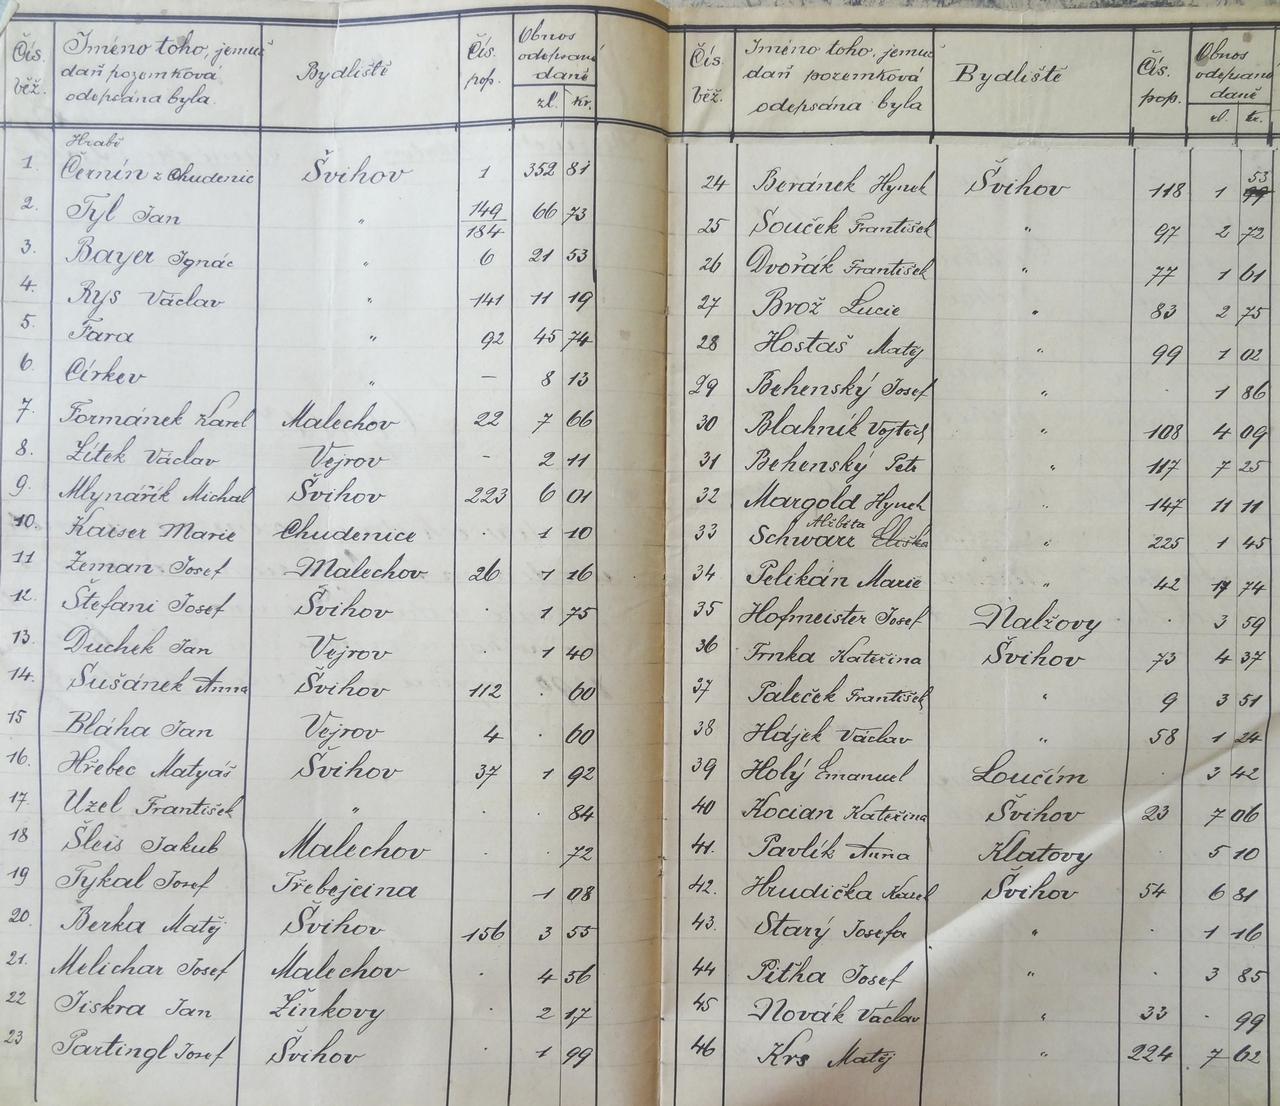 Čís. běž. Jméno toho, jemuž daň pozemková odepsána byla. Bydliště Čís. pop. Obnos odepsané daně zl. kr.
Hrabě
1. Černín z Chudenic Švihov 1 352 81
2. Tyl Jan " 149/184 66 73
3. Bayer Ignác " 6 21 53
4. Rys Václav " 141 11 19
5. Fara " 92 45 74
6. Církev " — 8 13
7. Formánek Karel Malechov 22 7 66
8. Žítek Václav Vejrov – 2 11
9. Mlynářík Michal Švihov 223 6 01
10. Kaeser Marie Chudenice · 1 10
11 Zeman Josef Malechov 26 1 16
12. Štefani Josef Švihov · 1 75
13. Duchek Jan Vejrov · 1 40
14. Sušánek Anna Švihov 112 · 60
15 Bláha Jan Vejrov 4 · 60
16. Hřebec Matyáš Švihov 37 1 92
17. Uzel František " · 84
18 Šleis Jakub Malechov · 72
19 Tykal Josef Třebejcina · 1 08
20. Berka Matěj Švihov 156 3 55
21. Melichar Josef Malechov · 4 56
22 Jiskra Jan Žinkovy · 2 17
23 Partingl Josef Švihov · 1 99
Čís. běž. Jméno toho, jemuž daň pozemková odepsána byla Bydliště Čís. pop. Obnos odepsané daně zl. kr.
24 Beránek Hynek Švihov 118 1 53
25 Souček František " 97 2 72
26 Dvořák František " 77 1 61
27 Brož Lucie " 83 2 75
28 Hostaš Matěj " 99 1 02
29 Behenský Josef " · 1 86
30 Blahník Vojtěch " 108 4 09
31 Behenský Petr " 117 7 25
32 Margold Hynek " 147 11 11
33 Schwarz Alžběta Eliška " 225 1 45
34 Pelikán Marie " 42 74
35 Hofmeister Josef Nalžovy · 3 59
36 Trnka Kateřina Švihov 73 4 37
37 Paleček František " 9 3 51
38 Hájek Václav " 58 1 24
39 Holý Emanuel Loučím · 3 42
40 Kocian Kateřina Švihov 23 7 06
41. Pavlík Anna Klatovy 5 10
42. Hrudička Karel Švihov 54 6 81
43. Starý Josefa " · 1 16
44 Pitha Josef " · 3 85
45 Novák Václav " 33 · 99
46 Krs Matěj " 224 7 62